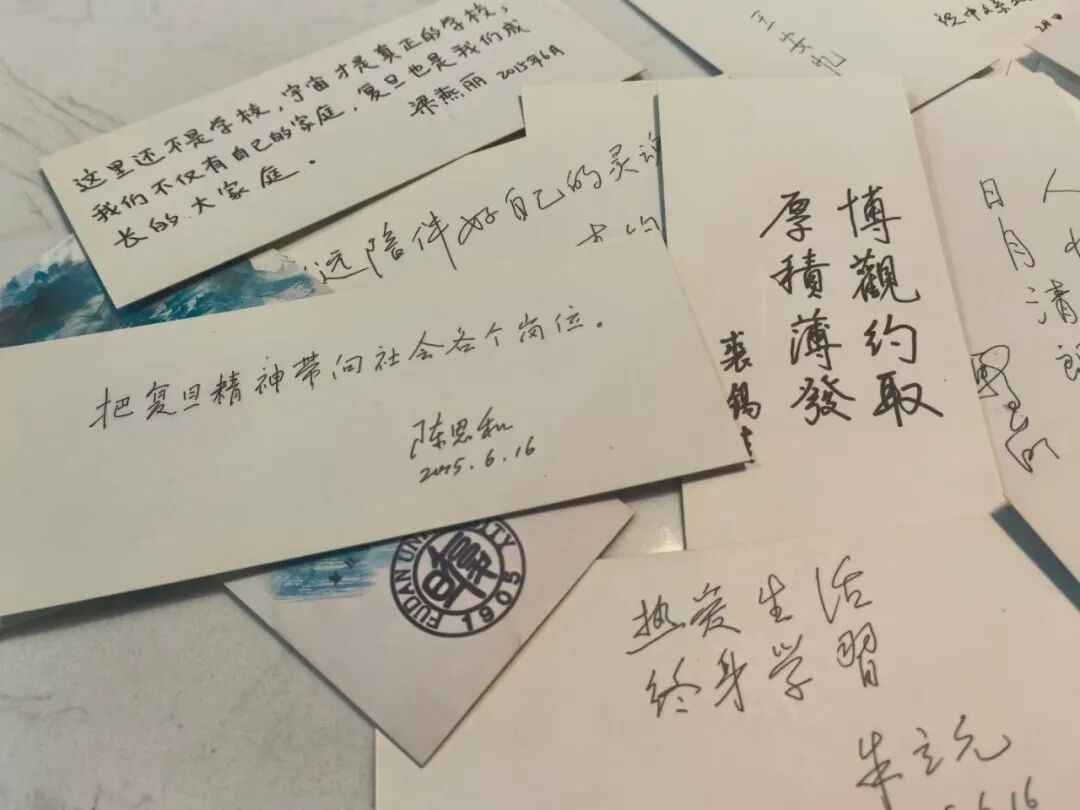 这里还不是学校，宇宙才是真正的学校，
我们不仅有自己的家庭，复旦也是我们成
长的大家庭．
梁燕丽 2015年6月
王安忆
远陪伴好自己的灵
博觀约取
厚積薄發
裘錫
人
日月清朗
把复旦精神带向社会各个岗位。
陈思和
2015.6.16
FUDAN UNIVERSITY
1905
热爱生活
终身学習
朱立元
6.16